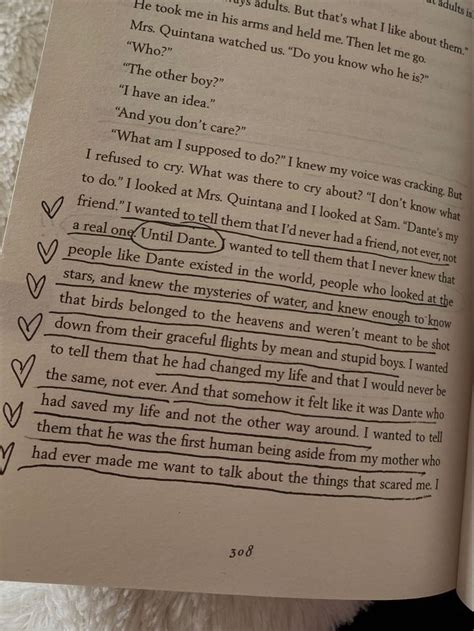 ys adults. But that's what I like about them."
He took me in his arms and held me. Then let me go.
Mrs. Quintana watched us. "Do you know who he is?"
"Who?"
"The other boy?"
"I have an idea."
"And you don't care?"
"What am I supposed to do?" I knew my voice was cracking. But
I refused to cry. What was there to cry about? "I don't know what
to do." I looked at Mrs. Quintana and I looked at Sam. "Dante's my
friend." I wanted to tell them that I'd never had a friend, not ever, not
a real one. Until Dante. I wanted to tell them that I never knew that
people like Dante existed in the world, people who looked at the
stars, and knew the mysteries of water, and knew enough to know
that birds belonged to the heavens and weren't meant to be shot
down from their graceful flights by mean and stupid boys. I wanted
to tell them that he had changed my life and that I would never be
the same, not ever. And that somehow it felt like it was Dante who
had saved my life and not the other way around. I wanted to tell
them that he was the first human being aside from my mother who
had ever made me want to talk about the things that scared me. I
308